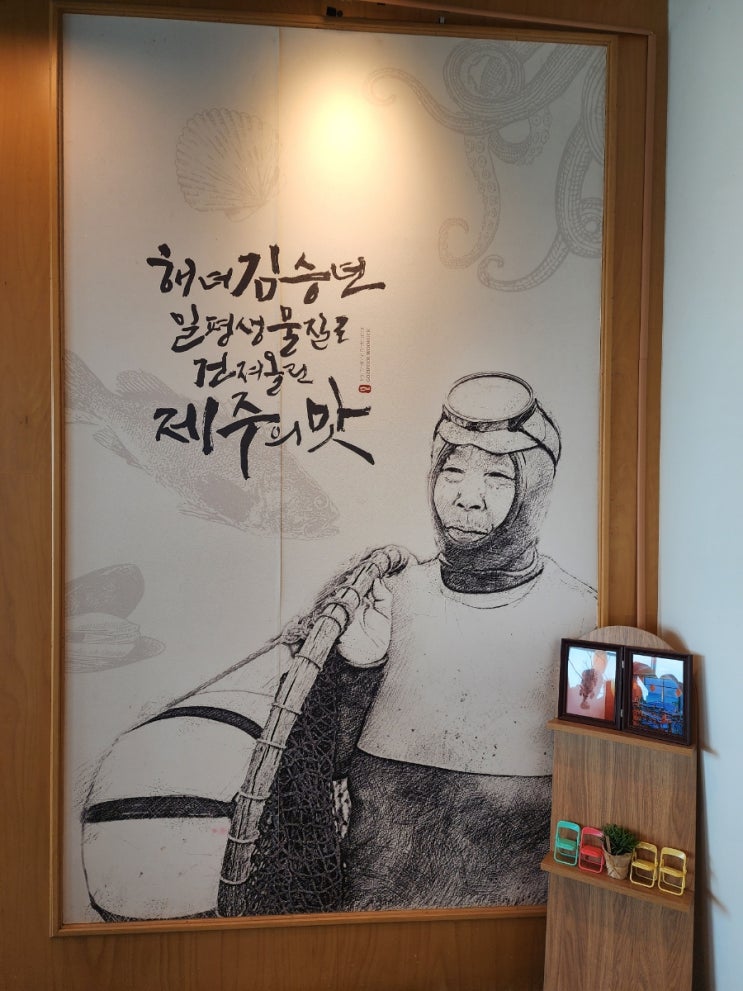 해녀 김승년
일평생 물질로
건져올린
제주의 맛